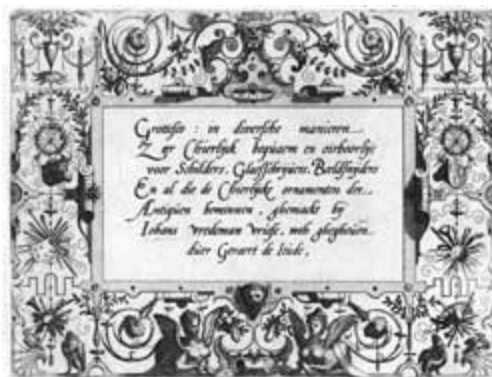 Grottesco : in diversche manieren
Zeer Chierlijck bequaem en oirboorlijc
voor Schilders, Glaesschryvers, Beeldsnyders
En al die de Chierlijcke ornamenten der
Antiquen beminnen, ghemaect by
Iohans vredeman vriese, wtghegheuen
duer Geraert de Iode,